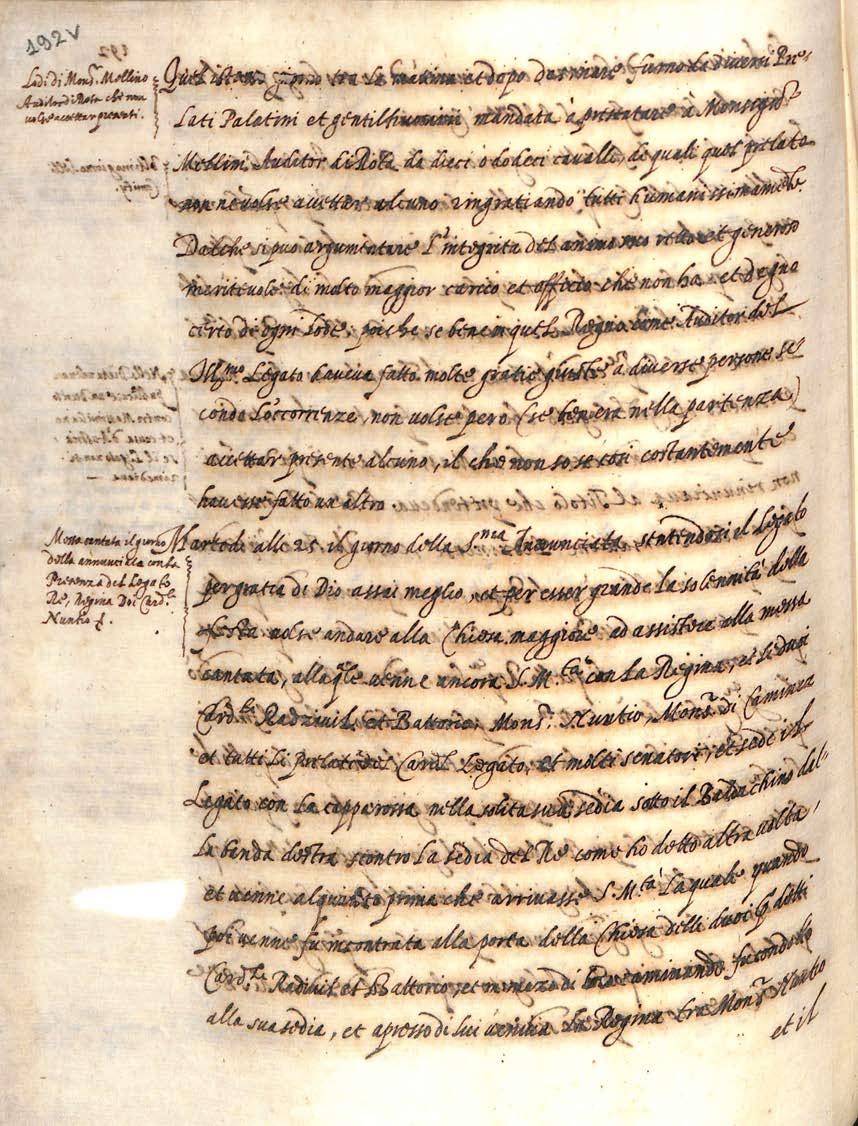 192v
192
Lodi di Mons.r Mellino
Auditor di Rota che non
volse accettar presenti.
Quell istesso giorno tra la matina et dopo desinare furno da diversi Pre-
lati Palatini et gentilhuomini mandata à presentare à Monsig.r
Mellini Auditor di Rota da dieci ò dodeci cavalli, de quali quel prelato
non ne volse accettare alcuno ringratiando tutti humanissimamente.
Dal che si puo argumentare l'integrita del animo suo retto et generoso
meritevole di molto maggior carico et officio che non ha et degno
certo de ogni lode, poiche se bene in quel Regno come Auditor del
Ill.mo Legato haveva fatto molte gratie giuste à diverse persone se-
condo l'occorrenze, non volse pero (se ben era nella partenza)
accettar presente alcuno, il che non so se cosi costantemente
havesse fatto un altro
Messa cantata il giorno
della annunciata con la
Presenza del Legato
Re, Regina Doi Card.li
Nuntio
Martedi alle 25. il giorno della S.ma Annunciata, sentendosi il Legato
per gratia di Dio assai meglio, et per esser grande la solennità della
festa volse andare alla Chiesa maggiore ad assistere alla messa
cantata, alla q.le venne ancora S. M.tà con la Regina, et se duoi
Card.li Radzivil, et Battorio, Mons.r Nuntio, Mons.r di Caminez
et tutti li prelati del Card.l Legato, et molti senatori, et sede il
Legato con la cappa rossa nella solita sua sedia sotto il Baldachino dal-
la banda destra scontro la sedia del Re come ho detto altra volta,
et venne alquanto prima che arrivasse S. M.tà la quale quando
poi venne fu incontrata alla porta della Chiesa delli duoi detti
Card.li Radivil et Battorio, et in mezo di loro caminando secondo
alla sua sedia, et apresso di lui veniva la Regina tra Mons.r Nuntio
et il